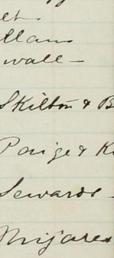 et
llans
wall -
Skilton & B
Paige & K
Sewards -
Mijares